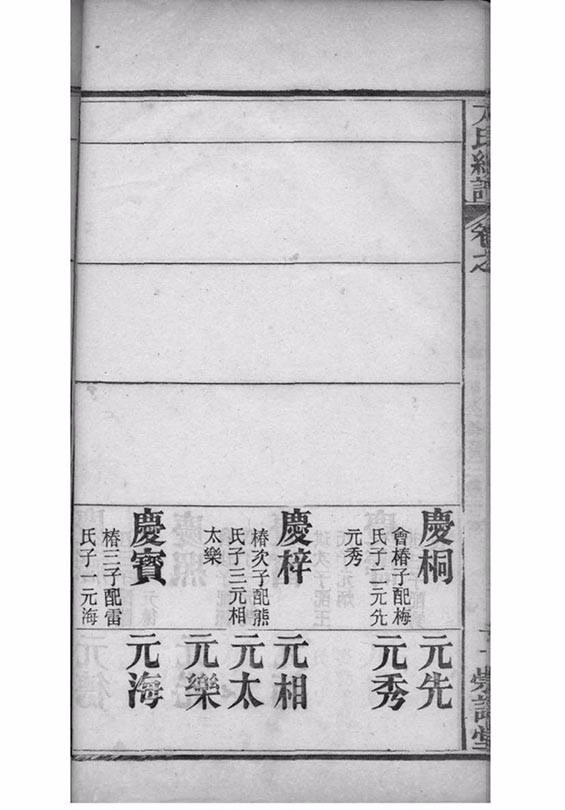 卷之
慶桐
會椿子配梅
氏子二元先
元秀
慶梓
椿次子配熊
氏子三元相
太樂
慶賓
椿三子配雷
氏子一元海
元先
元秀
元相
元太
元樂
元海